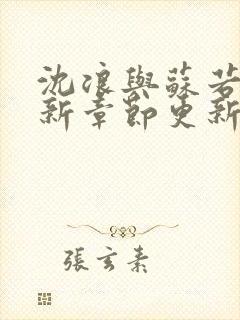 沈浪與蘇若
新章節更新
張玄素